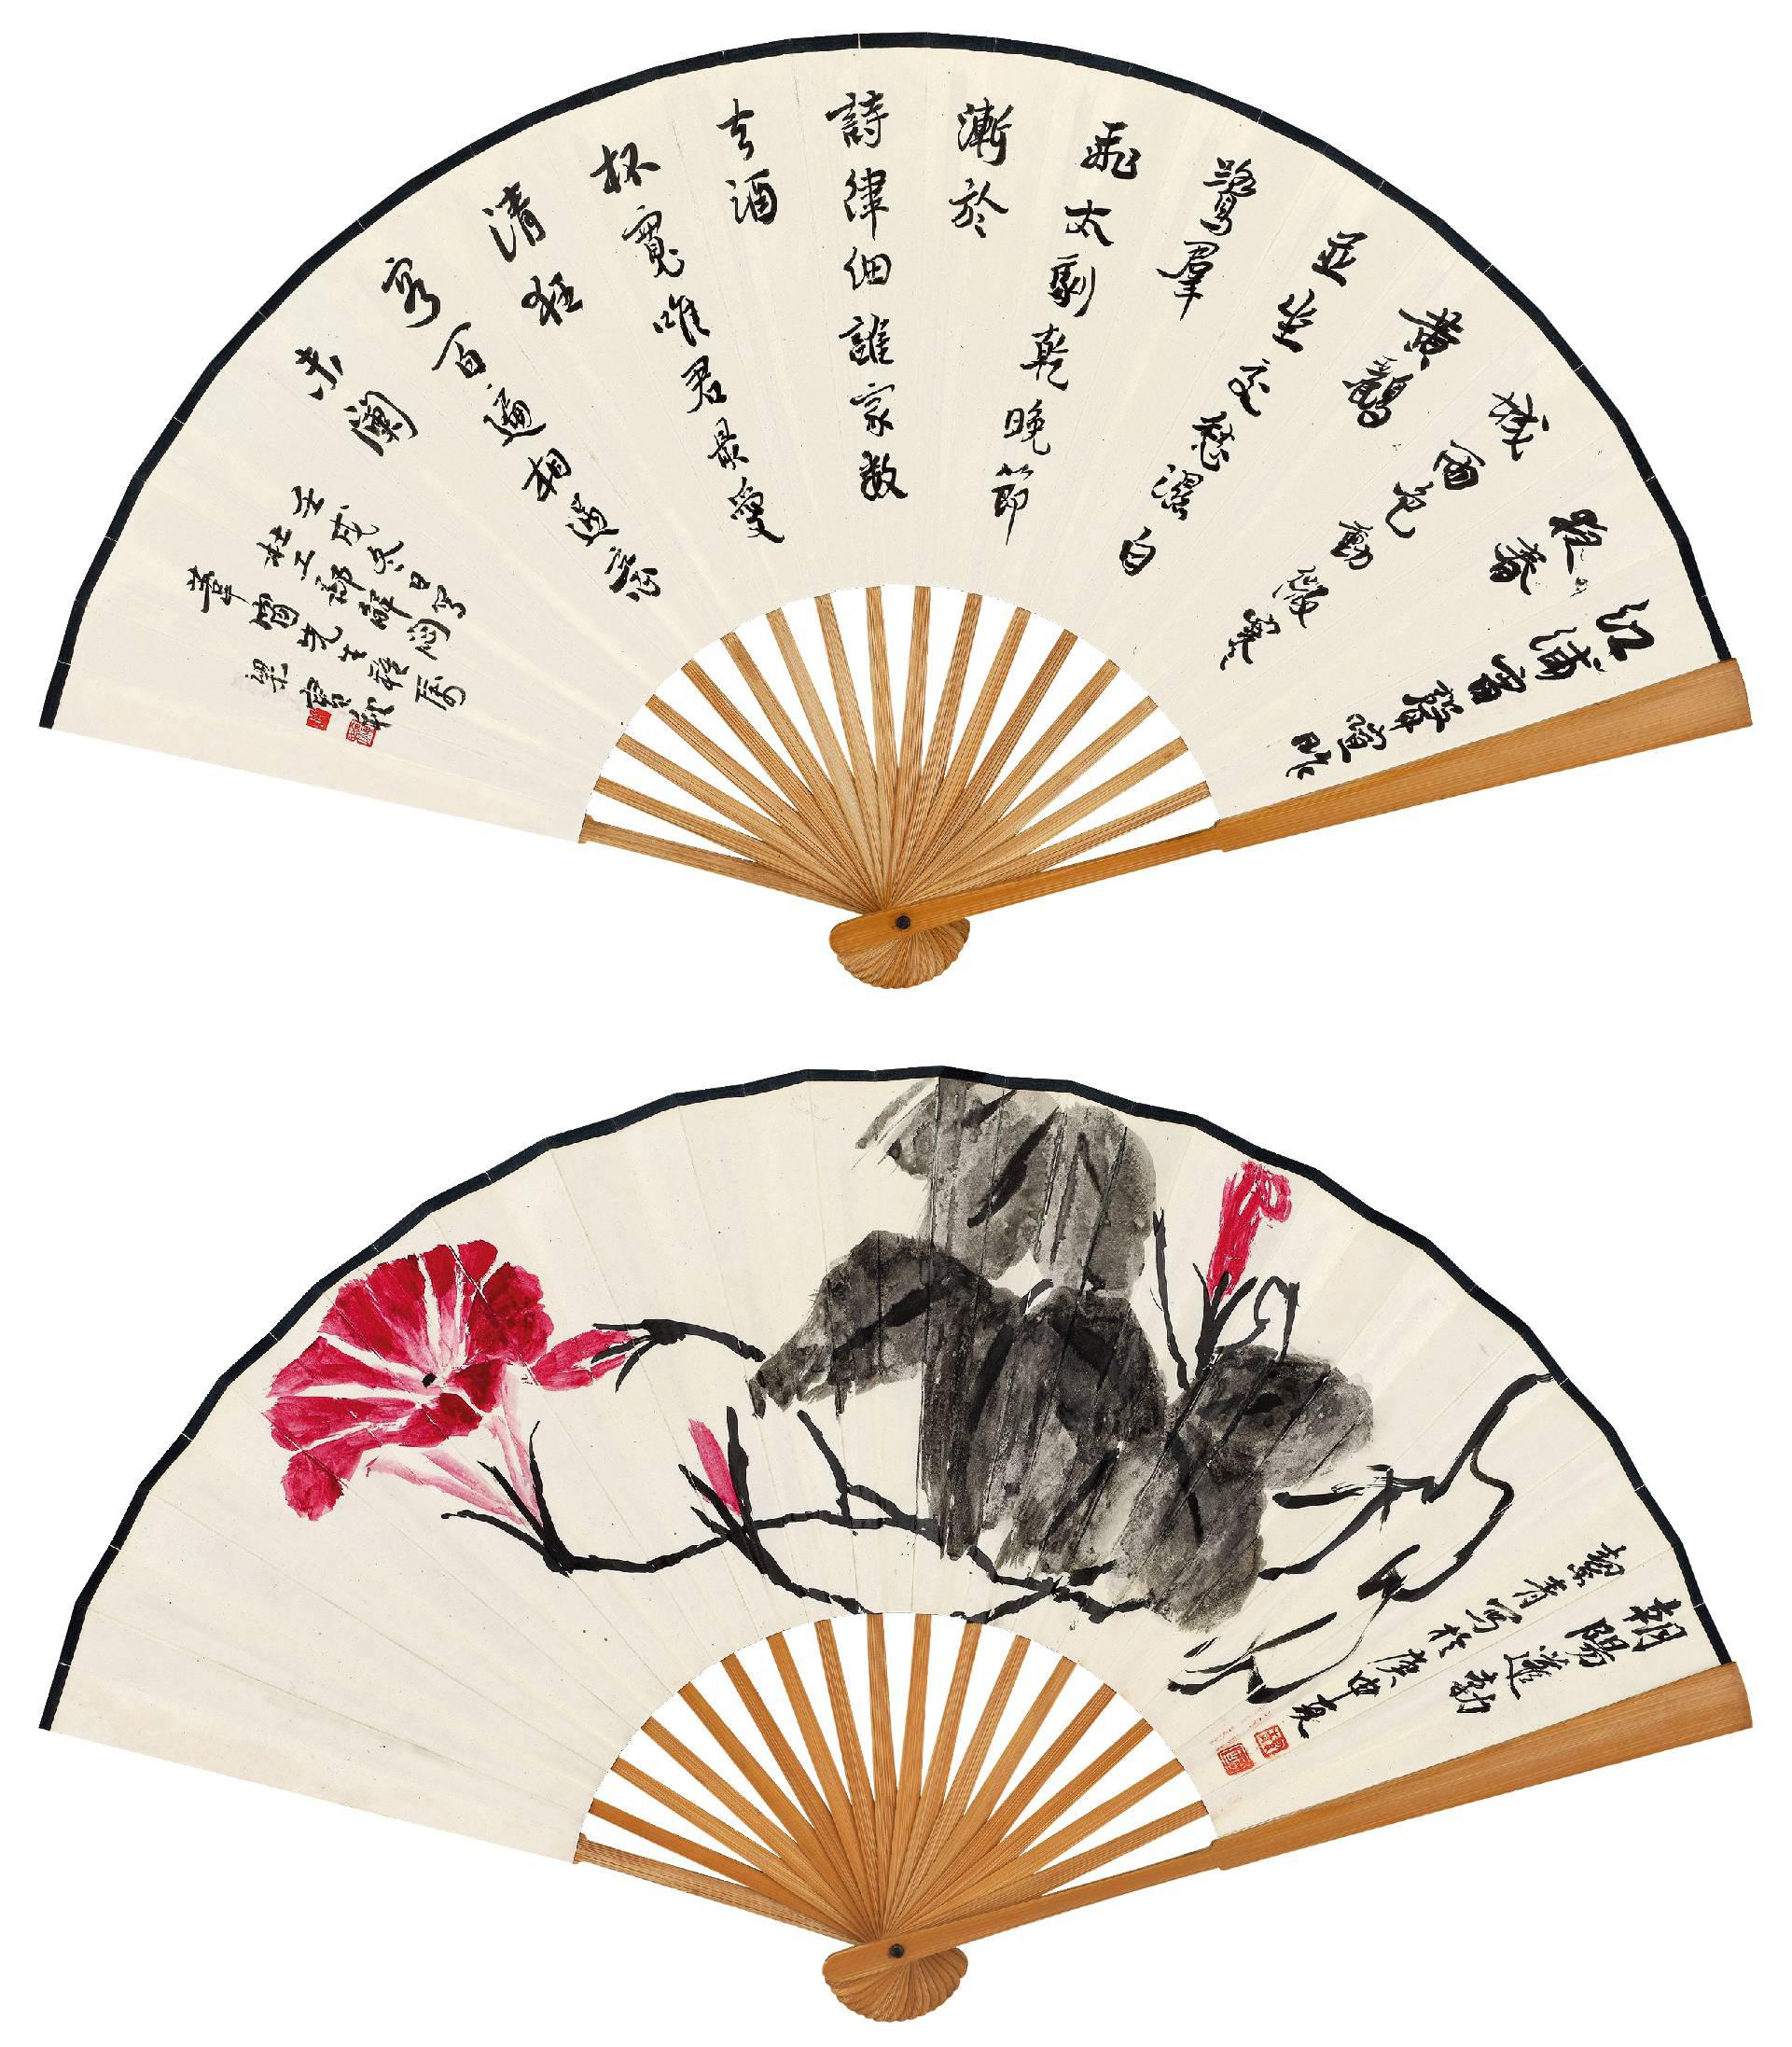 江浦雷聲喧昨
夜春
城雨色動微寒
黃鸝
並坐交愁濕白
鷺羣
飛太劇乾晚節
漸於
詩律細誰家數
去酒
杯寬唯君最愛
清狂
客百遍相過意
未闌
壬戌冬日寫
杜工部解悶
葦窗先生雅屬
梁實秋
朝陽蓬勃
絜青寫於庚申夏